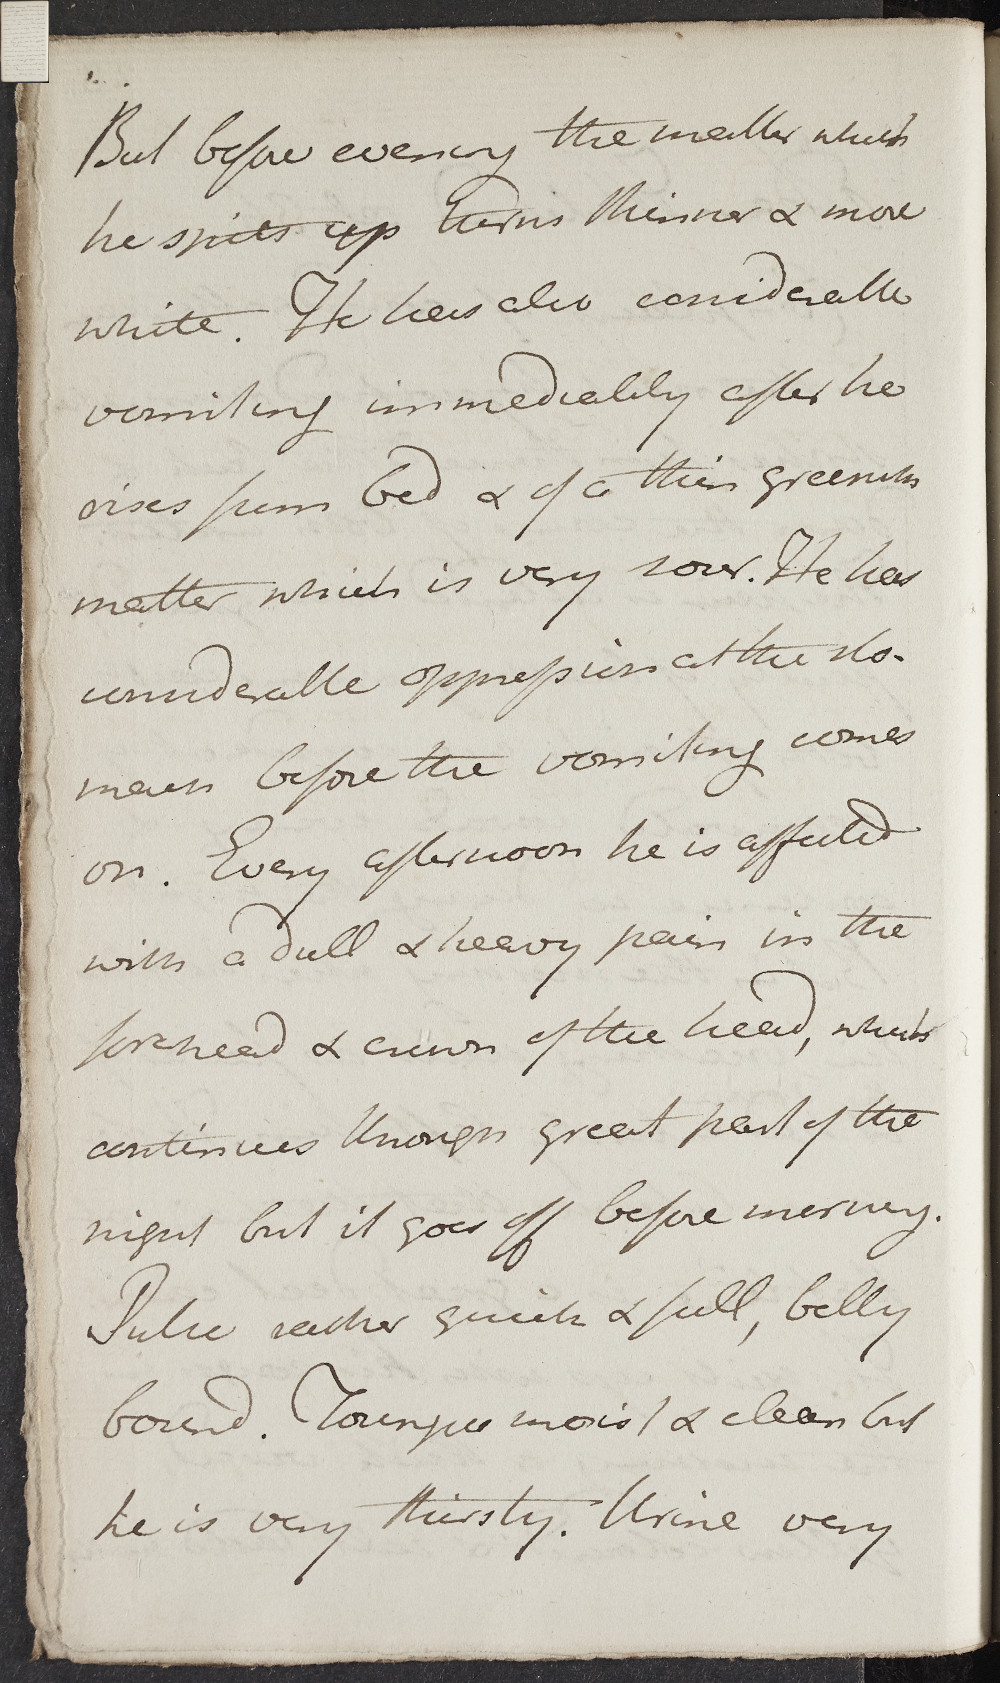 But before evening the matter which
he spits up turns thinner & more
white. He has also considerable
vomiting immediately after he
rises from bed & of a thin greenish
matter which is very sour. He has
considerable oppression at the sto-
mach before the vomiting comes
on. Every afternoon he is affected
with a dull & heavy pain in the
forehead & crown of the head, which
continues through great part of the
night but it goes off before morning.
Pulse rather quick & full, belly
bound. Toungue moist & clean but
he is very thirsty. Urine very